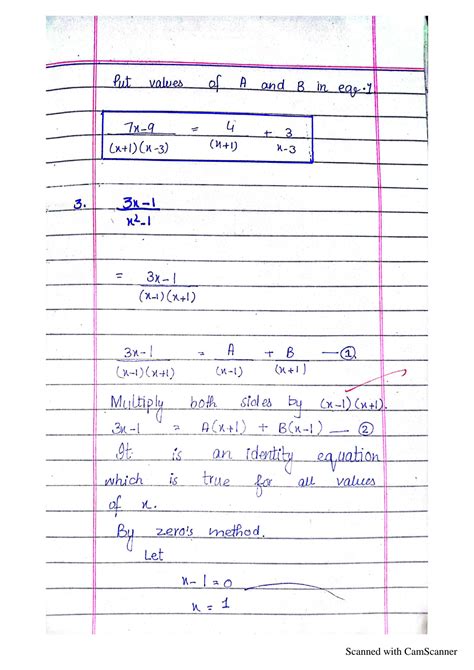 Put values of A and B in eq. 1
7x-9/(x+1)(x-3) = 4/(x+1) + 3/x-3
3. 3x-1/x²-1
= 3x-1/(x-1)(x+1)
3x-1/(x-1)(x+1) = A/(x-1) + B/(x+1) — ①
Multiply both sides by (x-1)(x+1).
3x-1 = A(x+1) + B(x-1) — ②
It is an identity equation
which is true for all values
of x.
By zero's method.
Let
x-1=0
x = 1
Scanned with CamScanner